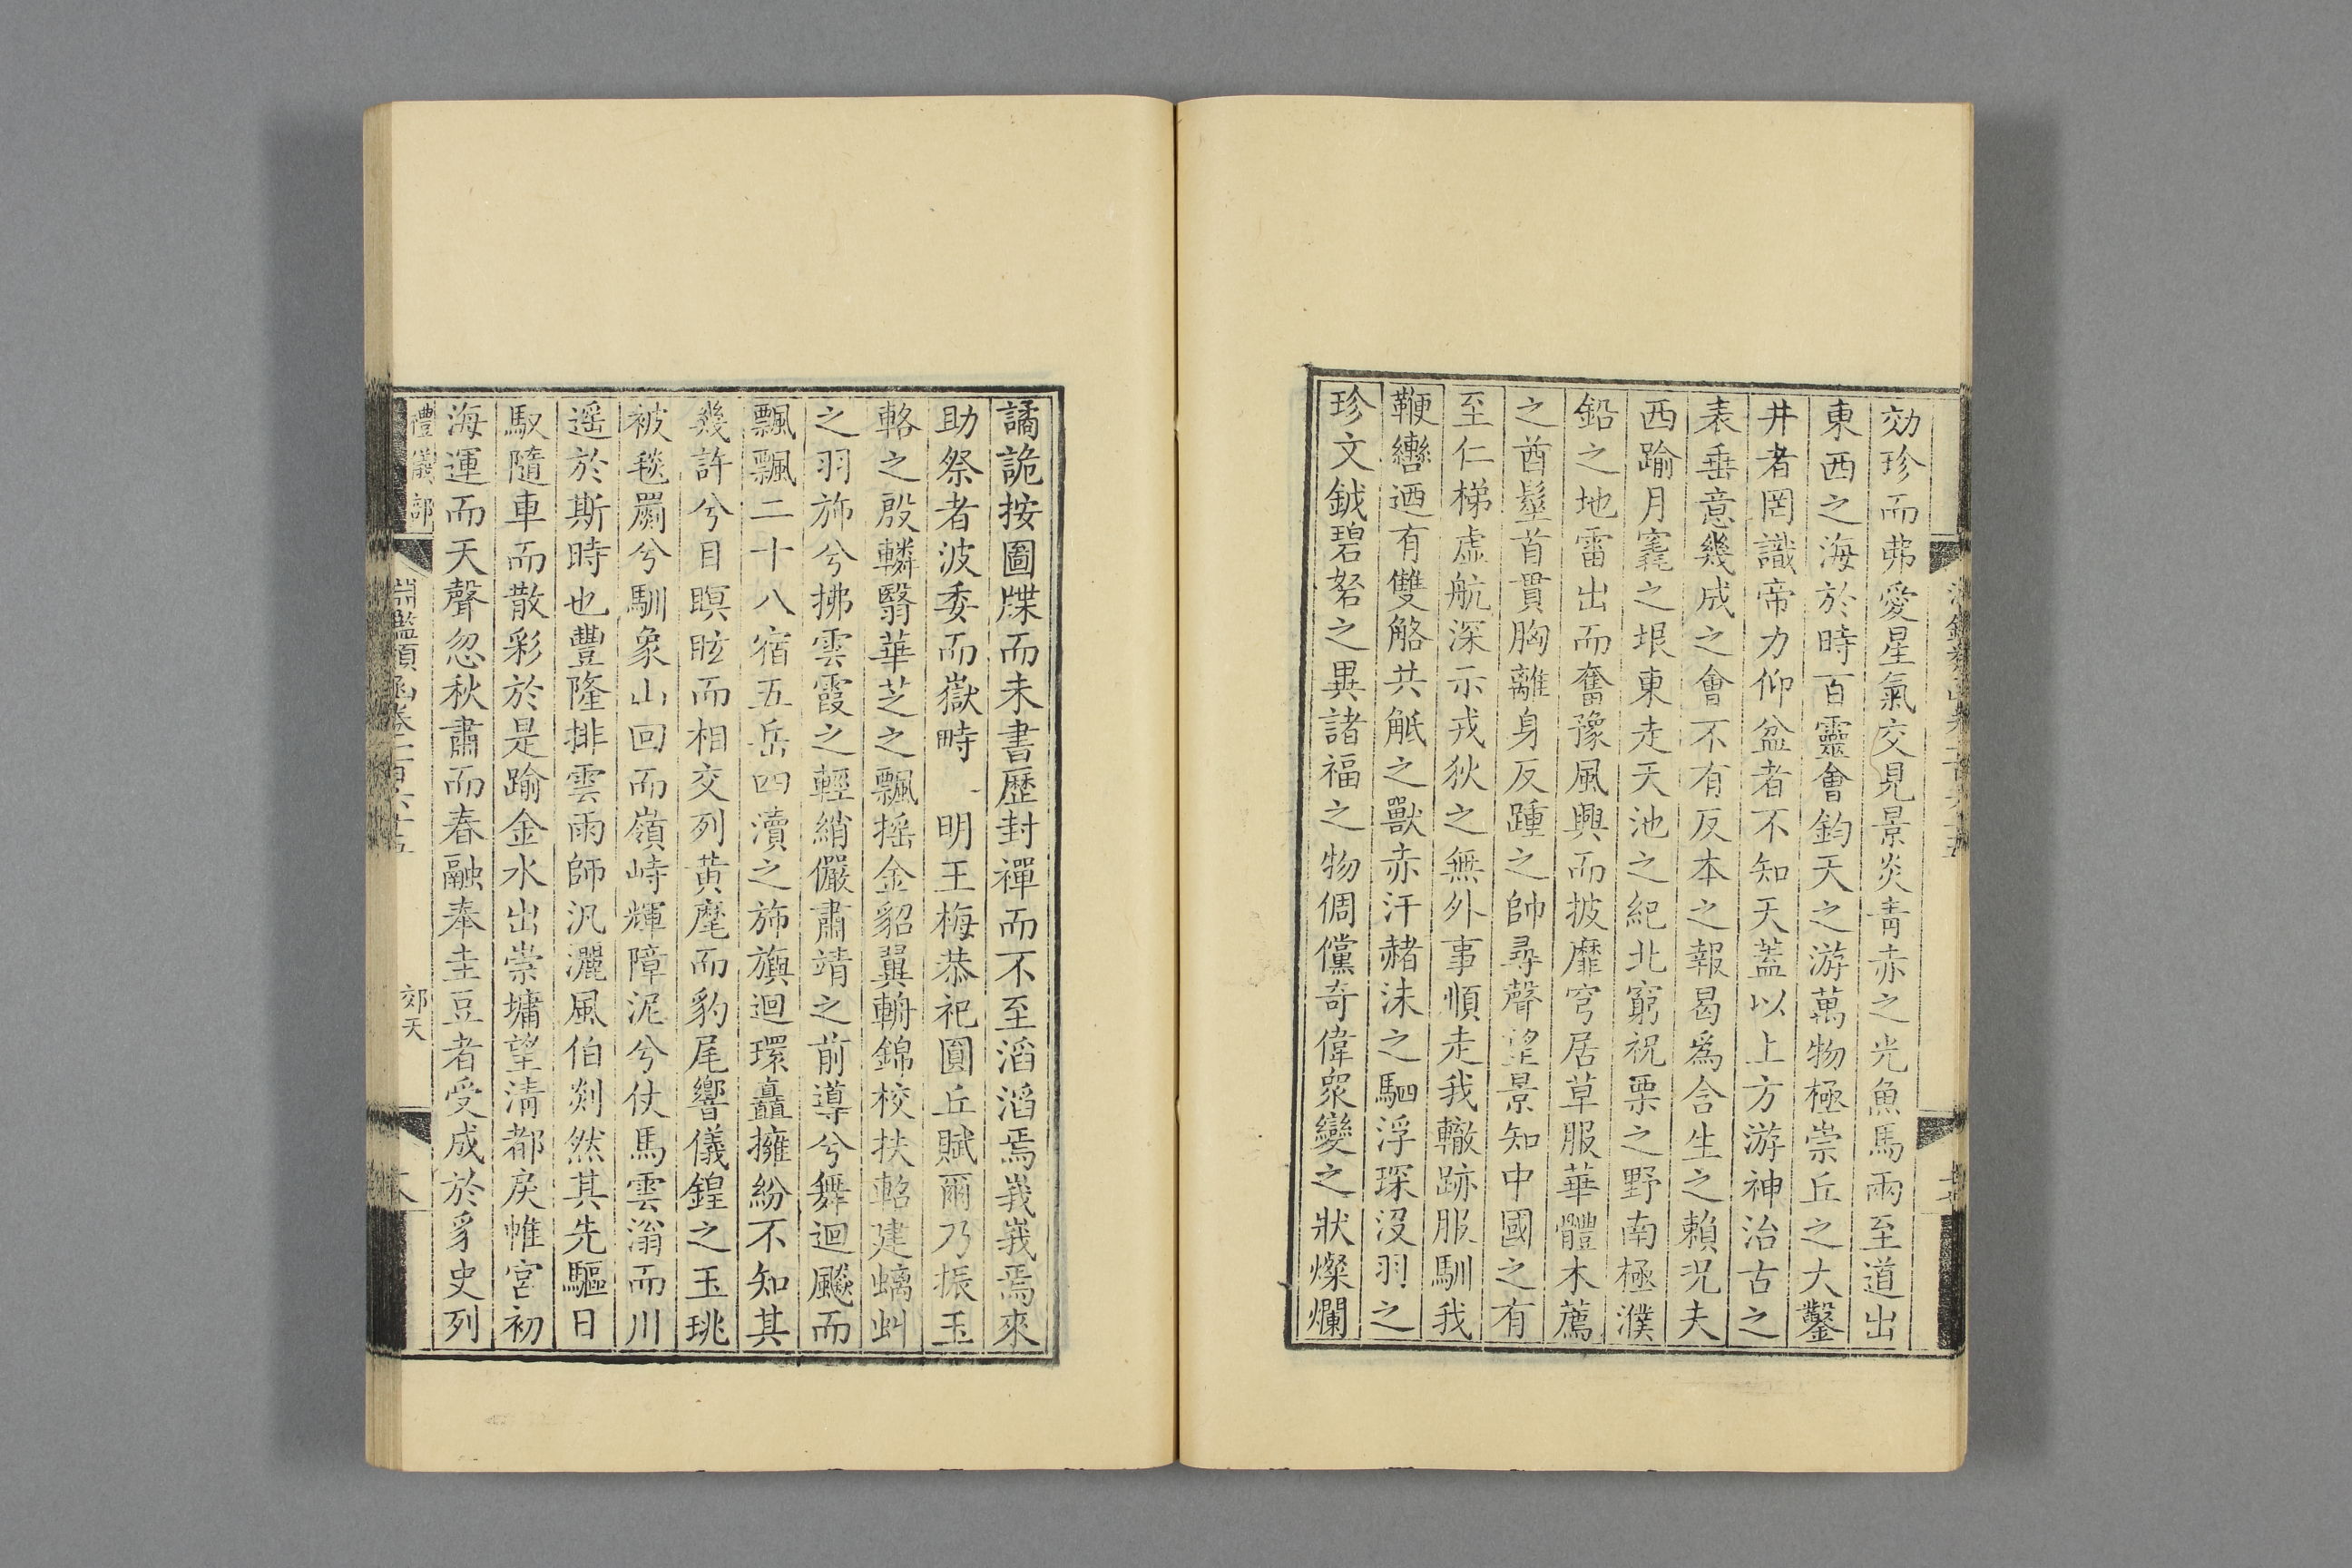 効珍而弗愛星氣交見景炎青赤之光魚馬兩至道出
東西之海於時百靈會鈞天之游萬物極崇丘之大鑿
井者罔識帝力仰盆者不知天蓋以上方游神治古之
表垂意幾成之會不有反本之報曷爲合生之賴況夫
西踰月窟之垠東走天池之紀北窮祝栗之野南極濮
鉛之地雷出而奮豫風興而披靡穹居草服華體木薦
之酋髽首貫胸離身反踵之帥尋聲望景知中國之有
至仁梯虛航深示戎狄之無外事順走我轍跡服馴我
鞭轡迺有雙觡共觝之獸赤汗赭沬之駟浮琛没羽之
珍文鉞碧砮之異諸福之物倜儻奇偉衆變之狀燦爛
譎詭按圖牒而未書歷封禪而不至滔滔焉峩峩焉來
助祭者波委而嶽峙 明王梅恭祀圓丘賦爾乃振玉
輅之殷轔翳華芝之飄揺金貂翼輈錦校扶軺建螭虯
之羽斾兮拂雲霞之輕綃儼肅靖之前導兮舞迴飈而
飄飄二十八宿五岳四瀆之斾旟迴環纛擁紛不知其
幾許兮目瞑眩而相交列黄麾而豹尾響儀鍠之玉珧
被毯罽兮馴象山回而嶺峙輝障泥兮仗馬雲滃而川
遥於斯時也豐隆排雲雨師汎灑風伯剡然其先驅日
馭隨車而散彩於是踰金水出崇墉望清都戾帷宮初
海運而天聲忽秋肅而春融奉圭豆者受成於豸史列
禮儀部
淵鑑類函卷一百六十五
郊天